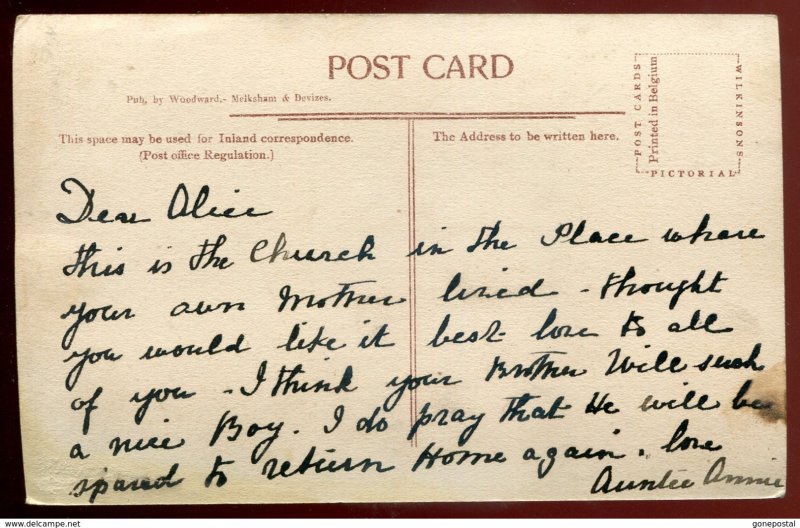 POST CARD
Pub, by Woodward,- Melksham & Devizes.
POST CARDS
Printed in Belgium
WILKINSONS
PICTORIAL
This space may be used for Inland correspondence.
(Post office Regulation.)
The Address to be written here.
Dear Alice
this is the Church in the Place where
your own Mother lived - thought
you would like it best- love to all
of you - I think your Brother Will such
a nice Boy. I do pray that He will be
spared to return Home again. love
Auntie Annie
© gonepostal
www.hipstamp.com